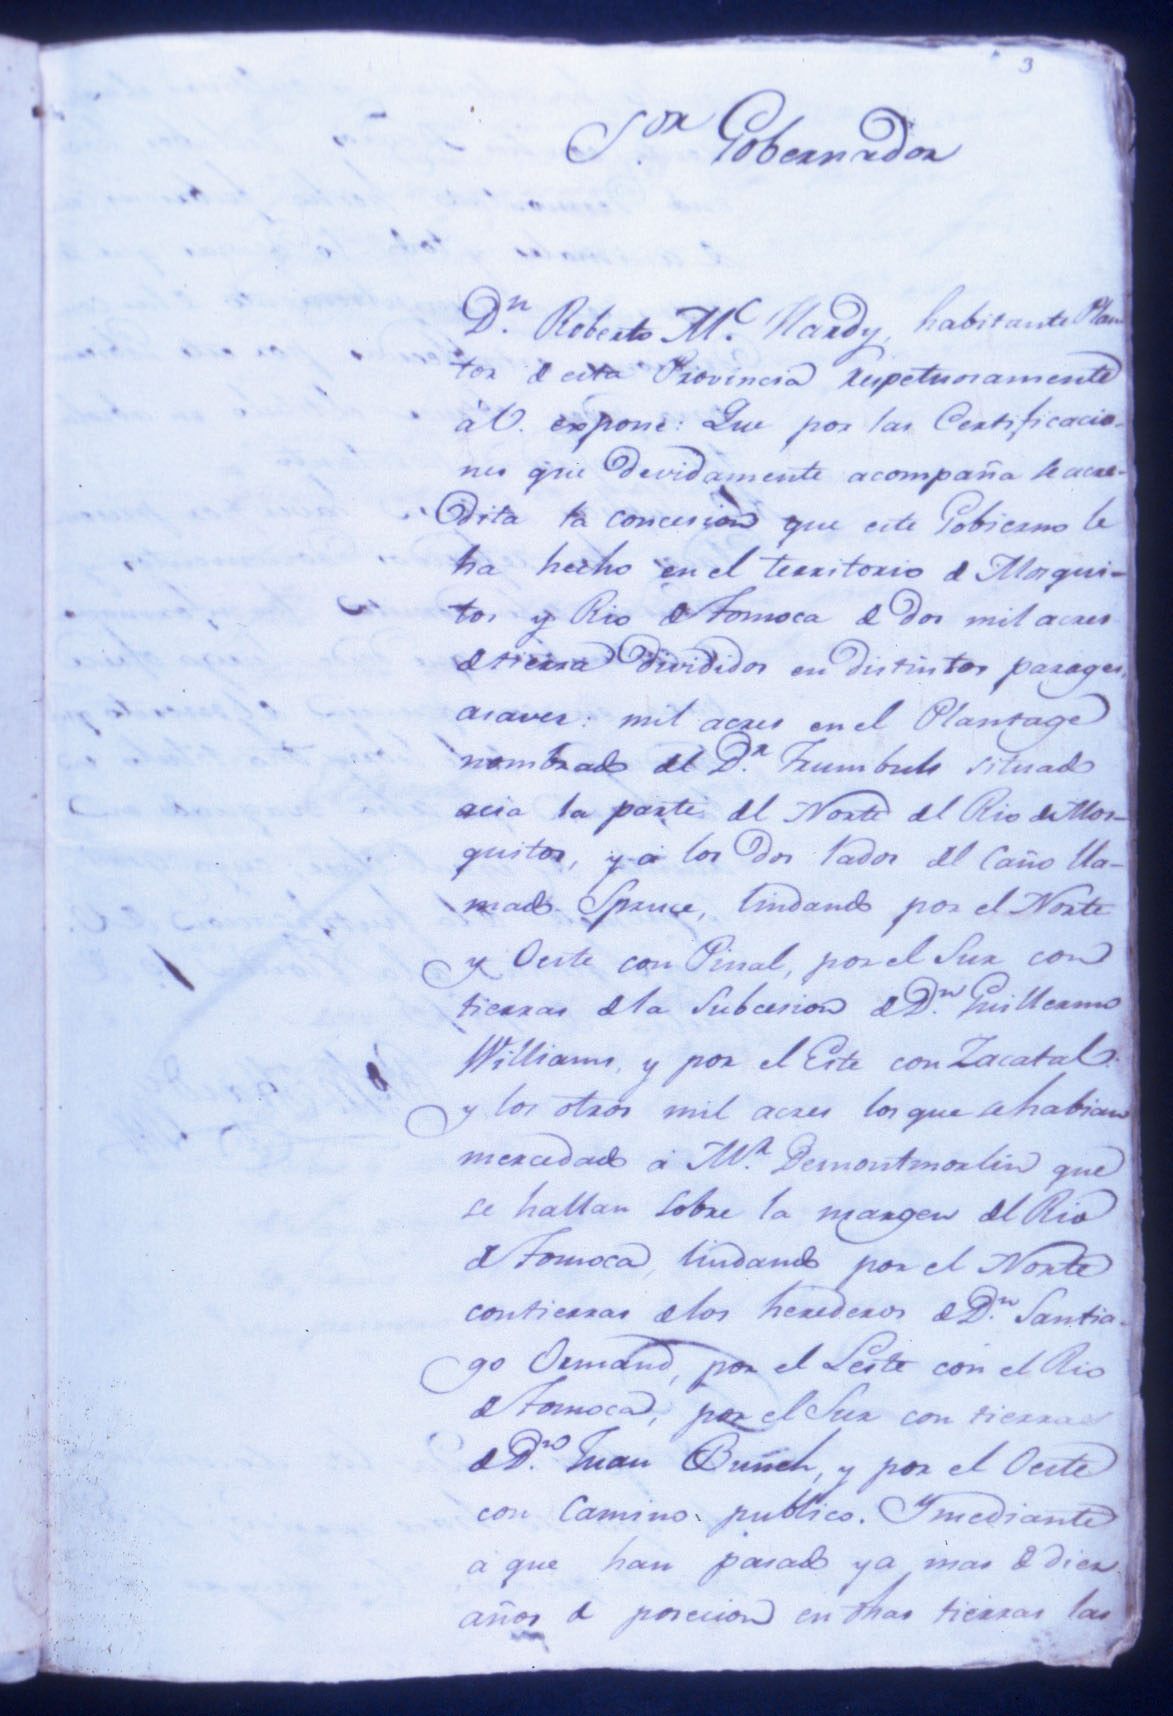 3
S.or Gobernador
D.n Roberto M.c Hardy, habitante Plan-
tor de esta Provincia respetuosamente
á V. expone: Que por las Certificacio-
nes que devidamente acompaña se acre-
dita la concesion que este Gobierno le
ha hecho en el territorio de Mosqui-
tos y Rio de Tomoca de dos mil acres
de tierra divididos en distintos parages,
asaver: mil acres en el Plantage
nombrado del D.r Trumbuls situado
acia la parte del Norte del Rio de Mos-
quitos, y a los dos lados del Caño lla-
mado Spruce, lindando por el Norte
y Oeste con Pinal, por el Sur con
tierras de la Subcesion de D.n Guillermo
Williams, y por el Este con Zacatal.
y los otros mil acres los que se habian
mercedado á M.r Demontmorlin que
se hallan sobre la margen del Rio
de Tomoca, lindando por el Norte
con tierras de los herederos de D.n Santia-
go Ormand, por el Leste con el Rio
de Tomoca, por el Sur con tierras
de D.n Juan Bunch, y por el Oeste
con Camino publico. Y mediante
a que han pasado ya mas de diez
años de posecion en dhas tierras las